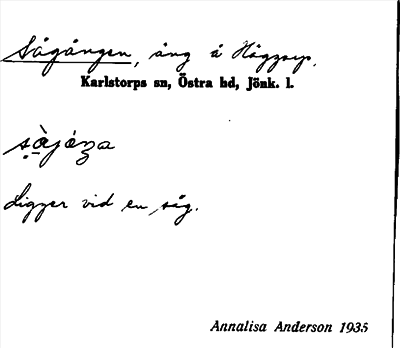 Sågången, äng å Höggorp.
Karlstorps sn, Östra hd, Jönk. l.
Ligger vid en såg.
Annalisa Anderson 1935